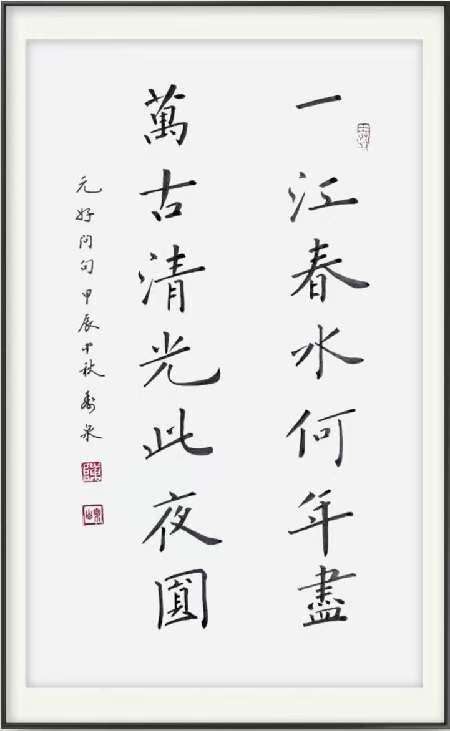 一江春水何年盡
萬古清光此夜圓
元好问句 甲辰中秋